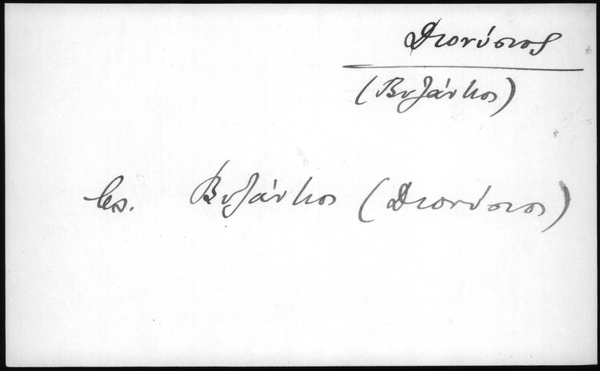 Διονύσιος
(Βυζάντιος)
Βυζάντιος (Διονύσιος)